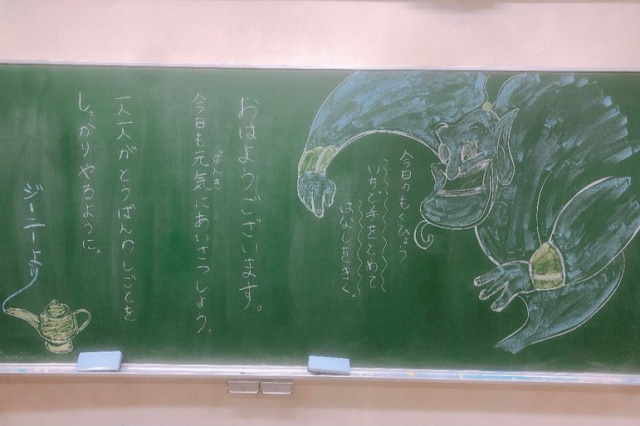 今日のもくひょう
いちど手をとめて
はなしをきく。
おはようございます。
今日も元気にあいさつしょう。
げんき
一人一人がとうばんのしごとを
しっかりやるように。
ジーニーより